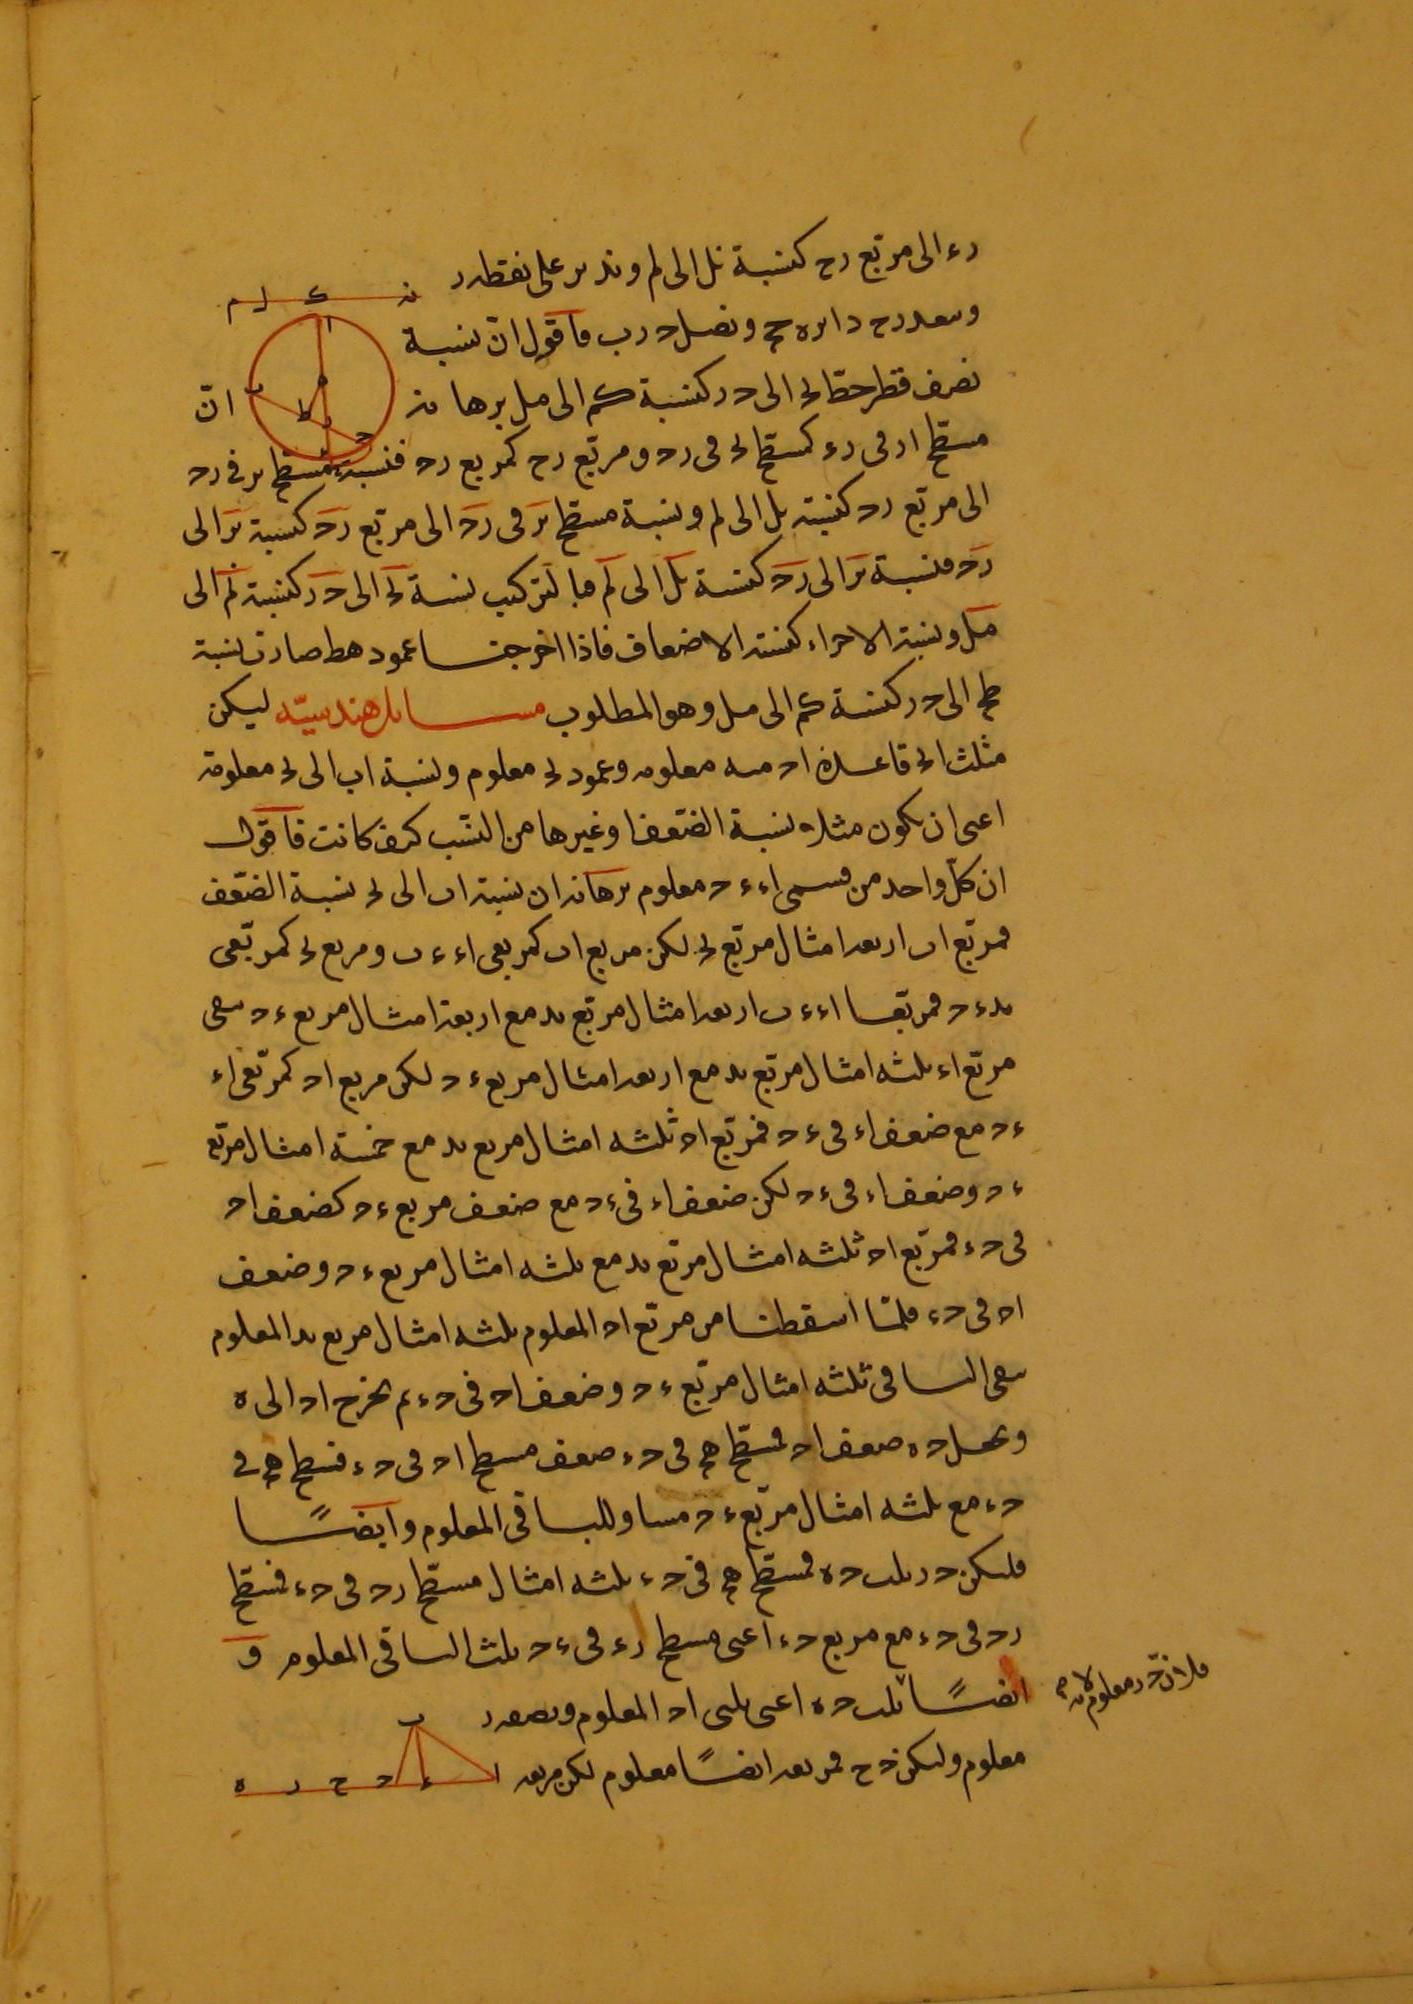 رء الى مربّع رح كنسبة نل الى لم وندير على نقطه ر
ن ك ل م
وببعد رح دايره حج ونصل حرب فاقول انّ نسبة
نصف قطر خطّ بح الى حر كنسبة كم الى مل برهانه انّ
مسطّح ار فى رء كمسطّح بر فى رح ومربّع رح كمربع رح فنسبة مسطّح بر فى رح
الى مربّع رح كنسبة نل الى لم ونسبة مسطّح بر فى رح الى مربّع رح كنسبة بر الى
رح فنسبة بر الى رح كنسبة نل الى لم فبالتركيب نسبة بح الى حر كنسبة نم الى
مل ونسبة الاجزاء كنسبة الاضعاف فاذا اخرجنا عمود هط صارت نسبة
طح الى حر كنسبة كم الى مل وهو المطلوب مسايل هندسيّه ليكن
مثلث ابح قاعدة اح منه معلومه وعمود بء معلوم ونسبة اب الى بح معلومة
اعنى ان يكون مثلا نسبة الضّعف او غيرها من النسّب كيف كانت فاقول
ان كلّ واحد من قسمى اء ء ح معلوم برهانه ان نسبة اب الى بح نسبة الضّعف
فمربّع اب اربعة امثال مربّع بح لكن مربع اب كمربعى اء ء ب ومربع بح كمربّعى
بء ء ح فمربّعا اء ء ب اربعة امثال مربّع بء مع اربعة امثال مربع ء ح يبقى
مربّع اء ثلثه امثال مربّع بء مع اربعة امثال مربع ء ح لكن مربع اح كمربّعى اء
ء ح مع ضعف اء فى ء ح فمربّع اح ثلثه امثال مربع بء مع خمسة امثال مربّع
ء ح وضعف اء فى ء ح لكن ضعف اء فى ء ح مع ضعف مربع ء ح كضعف اح
فى ح ء فمربّع اح ثلثه امثال مربّع بء مع ثلثه امثال مربع ء ح وضعف
اح فى ح ء فلمّا اسقطنا من مربّع اح المعلوم ثلثه امثال مربع بء المعلوم
يبقى الباقى ثلثه امثال مربّع ء ح وضعف اح فى ح ء ثم نخرج اح الى ه
ونجعل ح ه ضعف اح فمسطّح هح فى ح ء ضعف مسطح اح فى ح ء فمسطح هح فى
ح ء مع ثلثه امثال مربّع ء ح مساو للباقى المعلوم وايضًا
فليكن ح ر ثلث ح ه فمسطّح هح فى ح ء ثلثه امثال مسطّح رح فى ح ء فمسطّح
رح فى ح ء مع مربع ح ء اعنى مسطح رء فى ء ح ثلث الباقى المعلوم و
ايضًا ثلث ح ه اعنى ثلثى اح المعلوم ونصف ر
فلان حر معلوم لانه
معلوم وليكن ح ح فمربعه ايضًا معلوم لكن مربعه
ب
ا ء ح ح ر ه